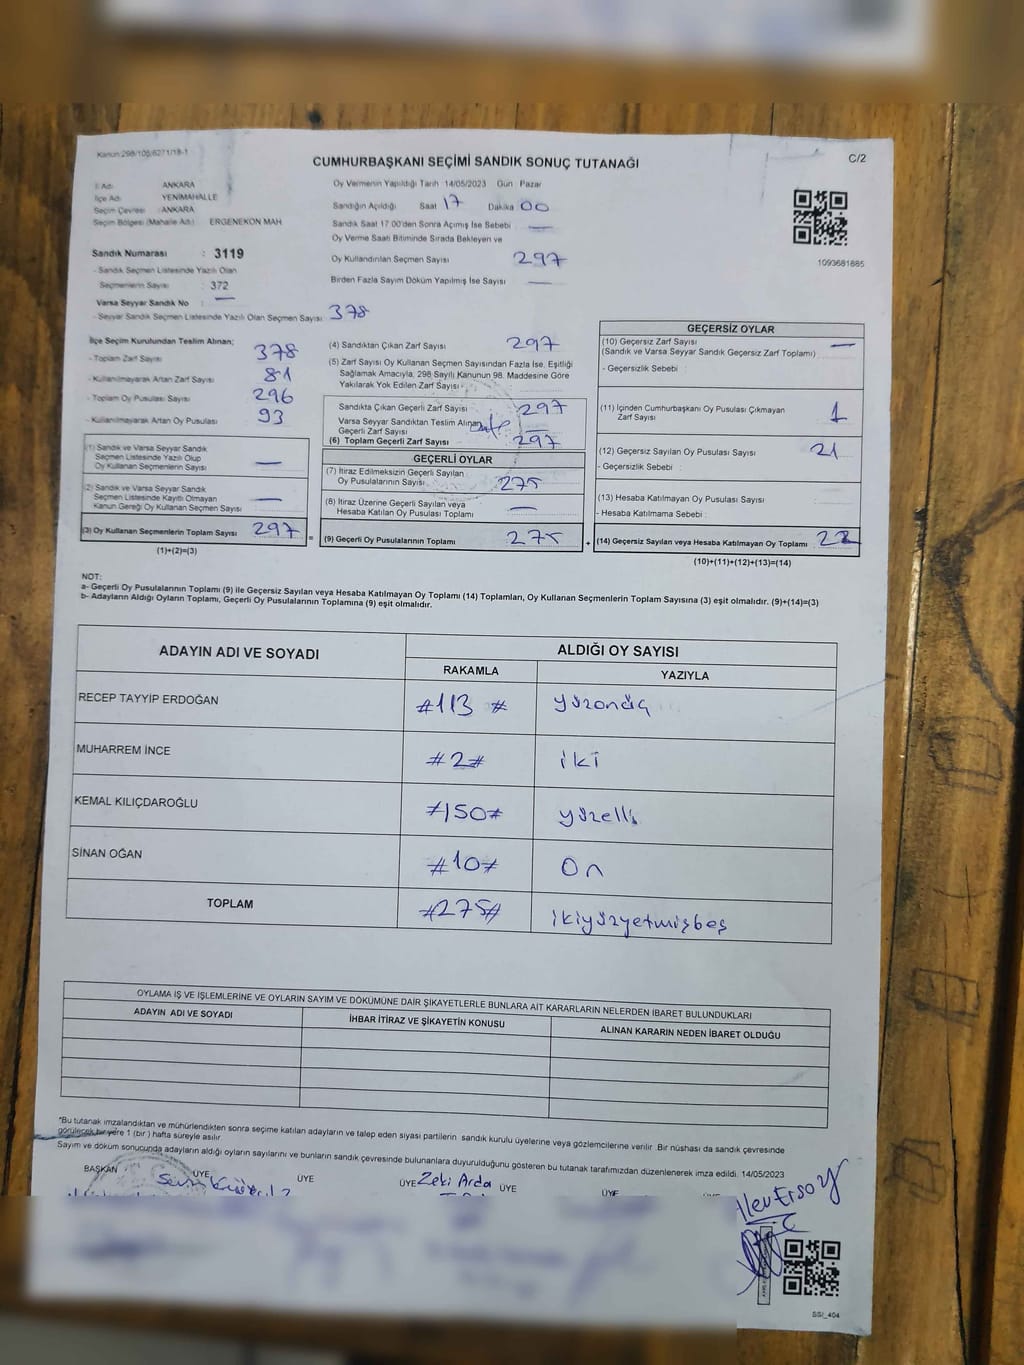 Kanun:298/105/6271/18-1
CUMHURBAŞKANI SEÇİMİ SANDIK SONUÇ TUTANAĞI
C/2
İl Adı ANKARA
İlçe Adı YENİMAHALLE
Seçim Çevresi : ANKARA
Seçim Bölgesi (Mahalle Adı) : ERGENEKON MAH
Sandık Numarası : 3119
- Sandık Seçmen Listesinde Yazılı Olan
Seçmenlerin Sayısı : 372
Varsa Seyyar Sandık No : —
- Seyyar Sandık Seçmen Listesinde Yazılı Olan Seçmen Sayısı : 378
Oy Vermenin Yapıldığı Tarih 14/05/2023 Gün Pazar
Sandığın Açıldığı Saat 17 Dakika 00
Sandık Saat 17.00'den Sonra Açımış İse Sebebi : —
Oy Verme Saati Bitiminde Sırada Bekleyen ve
Oy Kullandırılan Seçmen Sayısı 297
Birden Fazla Sayım Döküm Yapılmış İse Sayısı —
1093681885
İlçe Seçim Kurulundan Teslim Alınan;
- Toplam Zarf Sayısı 378
- Kullanılmayarak Artan Zarf Sayısı 81
- Toplam Oy Pusulası Sayısı 296
- Kullanılmayarak Artan Oy Pusulası 93
(1) Sandık ve Varsa Seyyar Sandık
Seçmen Listesinde Yazılı Olup
Oy Kullanan Seçmenlerin Sayısı —
(2) Sandık ve Varsa Seyyar Sandık
Seçmen Listesinde Kayıtlı Olmayan
Kanun Gereği Oy Kullanan Seçmen Sayısı —
(3) Oy Kullanan Seçmenlerin Toplam Sayısı 297
(1)+(2)=(3)
(4) Sandıktan Çıkan Zarf Sayısı 297
(5) Zarf Sayısı Oy Kullanan Seçmen Sayısından Fazla İse, Eşitliği
Sağlamak Amacıyla, 298 Sayılı Kanunun 98. Maddesine Göre
Yakılarak Yok Edilen Zarf Sayısı
Sandıkta Çıkan Geçerli Zarf Sayısı 297
Varsa Seyyar Sandıktan Teslim Alınan
Geçerli Zarf Sayısı —
(6) Toplam Geçerli Zarf Sayısı 297
GEÇERLİ OYLAR
(7) İtiraz Edilmeksizin Geçerli Sayılan
Oy Pusulalarının Sayısı 275
(8) İtiraz Üzerine Geçerli Sayılan veya
Hesaba Katılan Oy Pusulası Toplamı —
= (9) Geçerli Oy Pusulalarının Toplamı 275 +
GEÇERSİZ OYLAR
(10) Geçersiz Zarf Sayısı —
(Sandık ve Varsa Seyyar Sandık Geçersiz Zarf Toplamı)
- Geçersizlik Sebebi :
(11) İçinden Cumhurbaşkanı Oy Pusulası Çıkmayan
Zarf Sayısı 1
(12) Geçersiz Sayılan Oy Pusulası Sayısı 21
- Geçersizlik Sebebi :
(13) Hesaba Katılmayan Oy Pusulası Sayısı
- Hesaba Katılmama Sebebi :
(14) Geçersiz Sayılan veya Hesaba Katılmayan Oy Toplamı 22
(10)+(11)+(12)+(13)=(14)
NOT:
a- Geçerli Oy Pusulalarının Toplamı (9) ile Geçersiz Sayılan veya Hesaba Katılmayan Oy Toplamı (14) Toplamları, Oy Kullanan Seçmenlerin Toplam Sayısına (3) eşit olmalıdır. (9)+(14)=(3)
b- Adayların Aldığı Oyların Toplamı, Geçerli Oy Pusulalarının Toplamına (9) eşit olmalıdır.
ADAYIN ADI VE SOYADI ALDIĞI OY SAYISI
RAKAMLA YAZIYLA
RECEP TAYYİP ERDOĞAN #113 # yüzonüç
MUHARREM İNCE #2# iki
KEMAL KILIÇDAROĞLU #150# yüzelli
SİNAN OĞAN #10# On
TOPLAM #275# ikiyüzyetmişbeş
OYLAMA İŞ VE İŞLEMLERİNE VE OYLARIN SAYIM VE DÖKÜMÜNE DAİR ŞİKAYETLERLE BUNLARA AİT KARARLARIN NELERDEN İBARET BULUNDUKLARI
ADAYIN ADI VE SOYADI İHBAR İTİRAZ VE ŞİKAYETİN KONUSU ALINAN KARARIN NEDEN İBARET OLDUĞU
*Bu tutanak imzalandıktan ve mühürlendikten sonra seçime katılan adayların ve talep eden siyasi partilerin sandık kurulu üyelerine veya gözlemcilerine verilir. Bir nüshası da sandık çevresinde
görülecek bir yere 1 (bir) hafta süreyle asılır.
Sayım ve döküm sonucunda adayların aldığı oyların sayılarını ve bunların sandık çevresinde bulunanlara duyurulduğunu gösteren bu tutanak tarafımızdan düzenlenerek imza edildi. 14/05/2023
BAŞKAN ÜYE ÜYE ÜYE Zeki Arda ÜYE ÜYE
Alev Ersoy
SSI_404